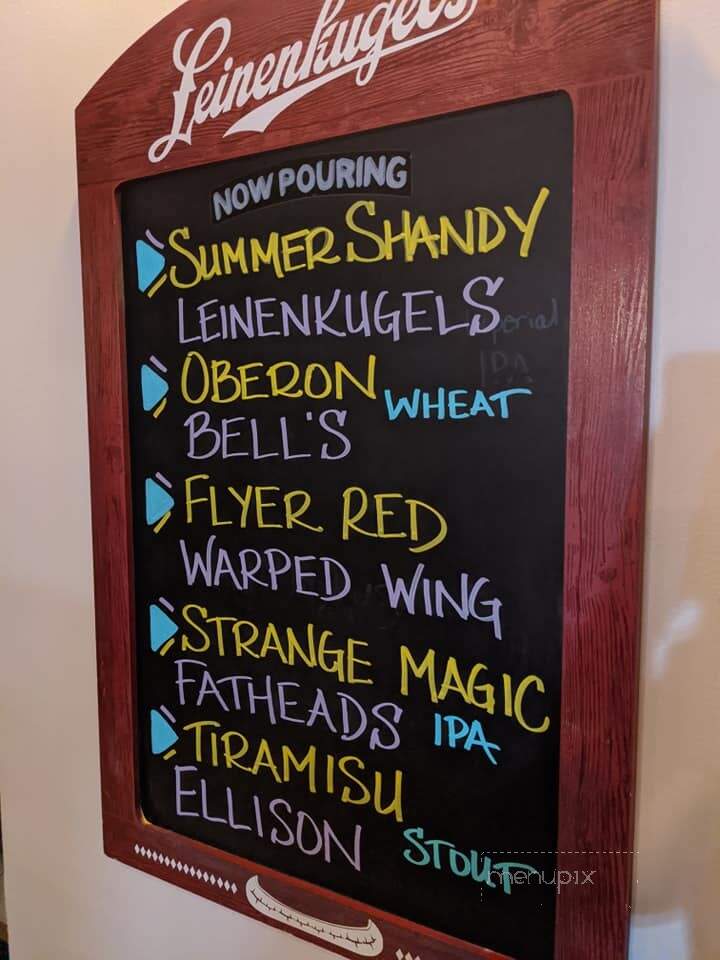 Leinenkugel's
NOW POURING
SUMMER SHANDY
LEINENKUGELS
OBERON WHEAT
BELL'S
FLYER RED
WARPED WING
STRANGE MAGIC
FATHEADS IPA
TIRAMISU
ELLISON STOUT
menupix